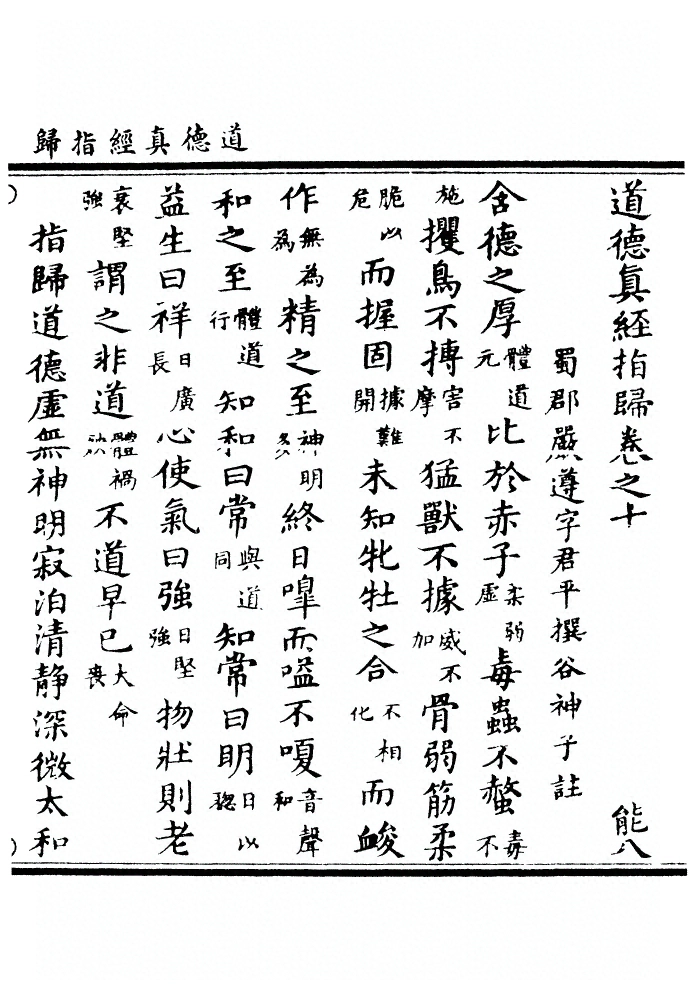 道德真經指歸
道德真經指歸卷之十 能八
蜀郡嚴遵字君平撰谷神子註
含德之厚體道元比於赤子柔弱虛毒蟲不螫毒不
施攫鳥不搏害不摩猛獸不據威不加骨弱筋柔
脆以危而握固據難開未知牝牡之合不相化而䘒
作無為為精之至神明多終日嘷而嗌不嗄音聲和
和之至體道行知和曰常與道同知常曰明日以聰
益生曰祥日廣長心使氣曰強日堅強物壯則老
衰堅強謂之非道體禍殃不道早已大命喪
指歸道德虛無神明寂泊清靜深微太和